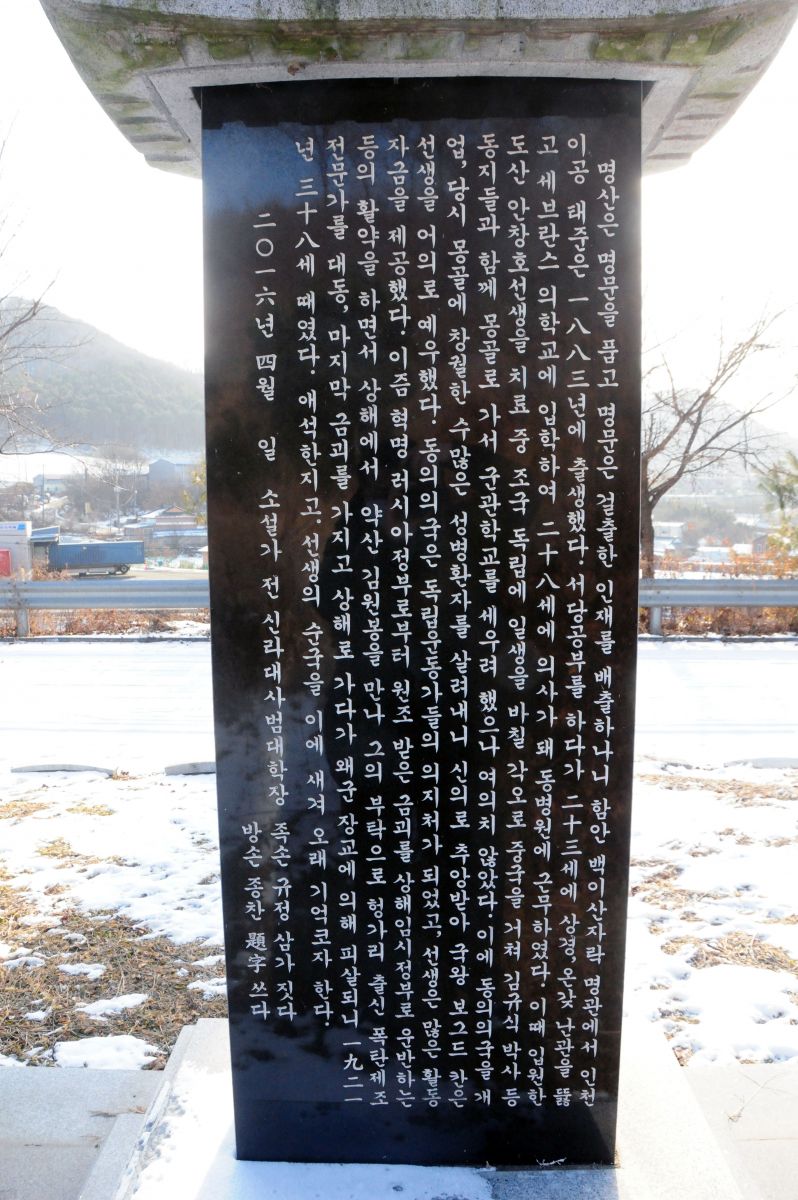 명산은 명문을 품고 명문은 걸출한 인재를 배출하나니 함안 백이산자락 명관에서 인천
이공 태준은 一八八三년에 출생했다. 서당공부를 하다가 二十三세에 상경, 온갖 난관을 뚫
고 세브란스 의학교에 입학하여 二十八세에 의사가 돼 동병원에 근무하였다. 이때 입원한
도산 안창호선생을 치료 중 조국 독립에 일생을 바칠 각오로 중국을 거쳐 김규식 박사 등
동지들과 함께 몽골로 가서 군관학교를 세우려 했으나 여의치 않았다. 이에 동의의국을 개
업, 당시 몽골에 창궐한 수많은 성병환자를 살려내니 신의로 추앙받아 국왕 보그드 칸은
선생을 어의로 예우했다. 동의의국은 독립운동가들의 의지처가 되었고, 선생은 많은 활동
자금을 제공했다. 이즘 혁명 러시아정부로부터 원조 받은 금괴를 상해임시정부로 운반하는
등의 활약을 하면서 상해에서 약산 김원봉을 만나 그의 부탁으로 헝가리 출신 폭탄제조
전문가를 대동, 마지막 금괴를 가지고 상해로 가다가 왜군 장교에 의해 피살되니 一九二一
년 三十八세 때였다. 애석한지고. 선생의 순국을 이에 새겨 오래 기억코자 한다.
二〇一六년 四월 일 소설가 전 신라대사범대학장 족손 규정 삼가 짓다
방손 종찬 題字 쓰다